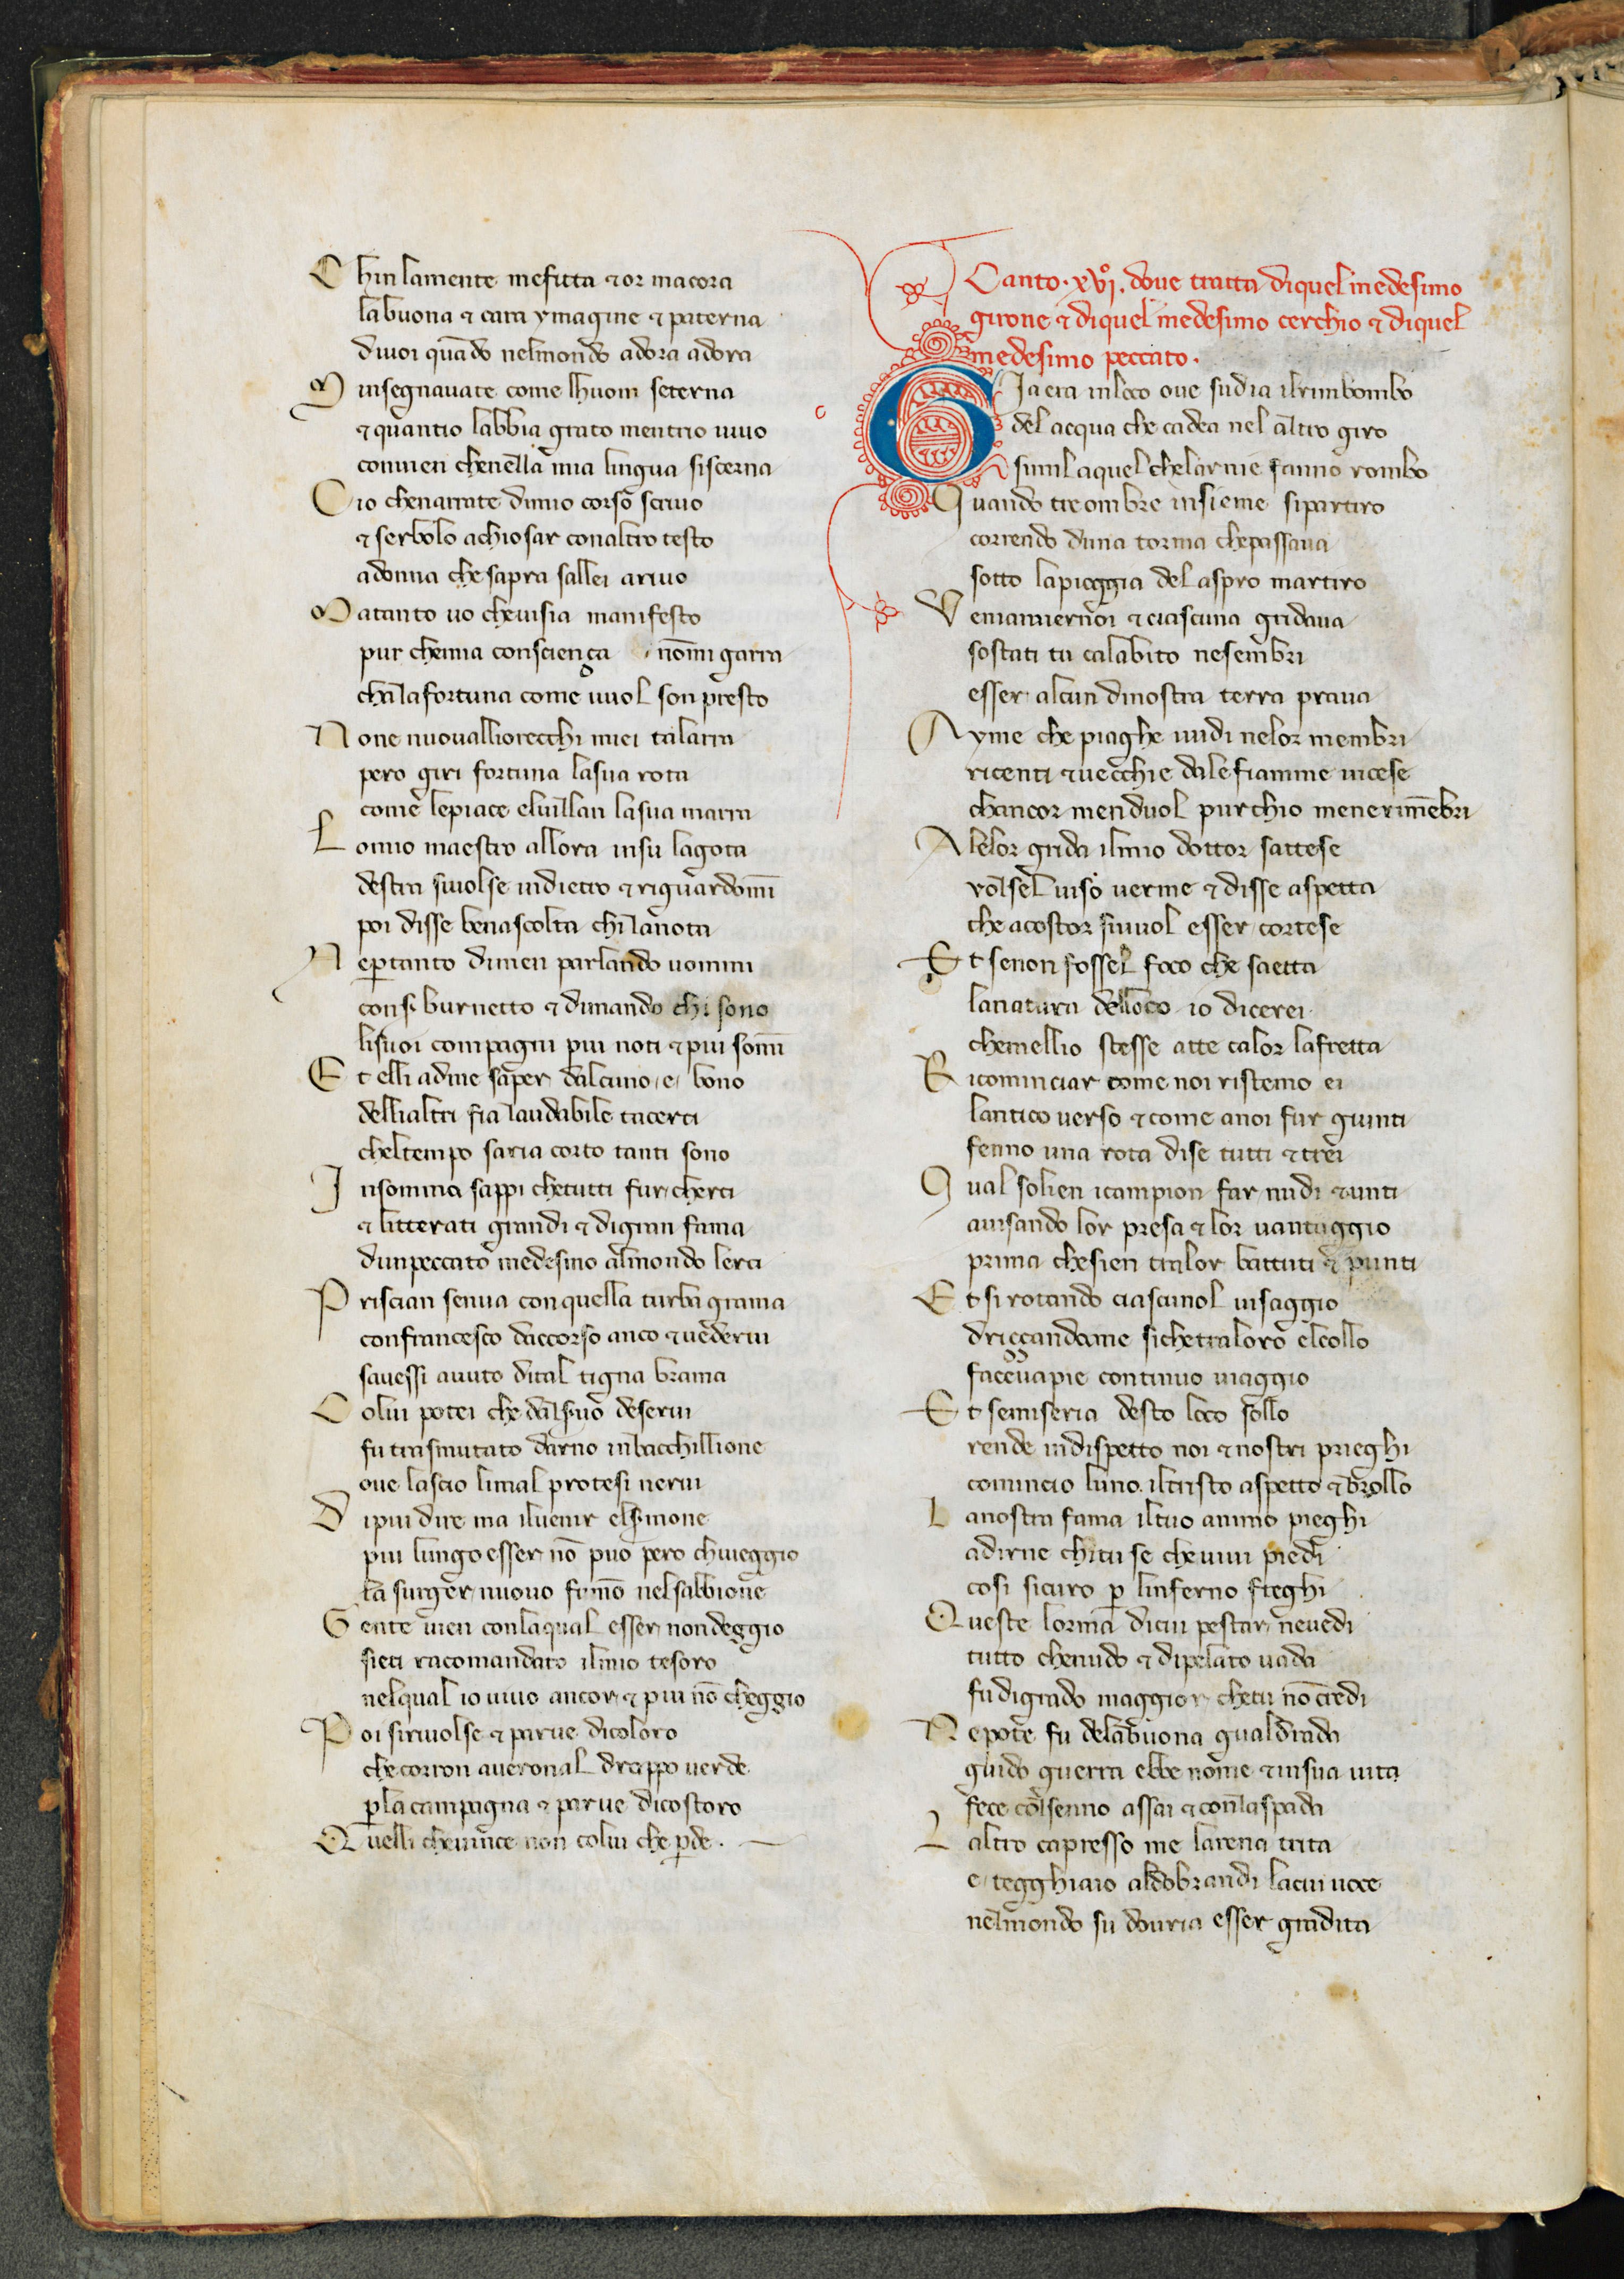 Chin lamente mefitta & or macora
labuona & cara ymagine & paterna
diuoi quādo nelmondo adora adora
Minsegnauate come lhuom seterna
& quantio labbia grato mentrio uiuo
conuien chenella mia lingua siscerna
Cio chenarrate dimio corso scriuo
& serbolo achiosar conaltro testo
adonna che sapra sallei ariuo
Matanto uo cheuisia manifesto
pur chemia consciença nōmi garra
chālafortuna come uuol son presto
None nuoualliorecchi miei talarra
pero giri fortuna lasua rota
come lepiace eluillan lasua marra
Lomio maestro allora insu lagota
destra siuolse indietro & riguardomi
poi disse benascolta chilanota
Ne ptanto dimen parlando uommi
conser burnetto & dimando chi sono
lisuoi compagni piu noti & piu sommi
Et elli adme saper dalcuno e bono
dellialtri fia laudabile tacerci
cheltempo saria corto tanti sono
Insomma sappi chetutti fur cherci
& litterati grandi & digran fama
dunpeccato medesmo almondo lerci
Priscian senua conquella turba grama
confrancesco daccorso anco & uederui
sauessi auuto dital tigna brama
Colui potei che dalseruo deserui
fu trasmutato darno inbacchillione
oue lascio limal protesi nerui
Dipiu dire ma iluenir elsermone
piu lungo esser nō puo pero chiueggio
la surger nuouo fumō nelsabbione
Gente uien conlaqual esser nondeggio
sieti racomandato ilmio tesoro
nelqual io uiuo ancor & piu nō cheggio
Poi siriuolse & parue dicoloro
che corron auerona l drappo uerde
pla campagna & parue dicostoro
Quelli cheuince non colui che pde.
Canto. xvjº. doue tratta diquel medesimo
girone & diquel medesimo cerchio & diquel
medesimo peccato.
Gia era inloco oue sudia ilrimbombo
del acqua che cadea nel altro giro
simil aquel chelarnie fanno rombo
Quando tre ombre insieme sipartiro
correndo duna torma chepassaua
sotto lapioggia del aspro martiro
Veniamuernoi & ciascuna gridaua
sostati tu calabito nesembri
esser alcun dinostra terra praua
Ayme che piaghe uidi nelor membri
ricenti & uecchie dalefiamme incese
chancor menduol purchio menerimēbri
Alelor grida ilmio dottor sattese
volsel uiso uerme & disse aspetta
che acostor siuuol esser cortese
Et senon fossel foco che saetta
lanatura delloco io dicerei
chemellio stesse atte calor lafretta
Ricominciar come noi ristemo ei
lantico uerso & come anoi fur giunti
fenno una rota dise tutti & trei
Qual solien icampion far nudi & unti
auisando lor presa & lor uantaggio
prima chesien tralor battuti & punti
Et si rotando ciascunol uisaggio
driççandeame sichetraloro elcollo
faceuapie continuo uiaggio
Et semiseria desto loco sollo
rende indispetto noi & nostri prieghi
comincio luno iltristo aspetto & brollo
Lanostra fama iltuo animo pieghi
adirne chitu se cheuiui piedi
cosi sicuro p linferno freghi
Queste lorma dicui pestar neuedi
tutto chenudo & dipelato uada
fu digrado maggior chetu nō credi
Nepote fu delabuona gualdrada
guido guerra ebbe nome & insua uita
fece colsenno assai & conlaspada
Laltro capresso me larena trita
e tegghiaio aldobrandi lacui uoce
nelmondo su douria esser gradita